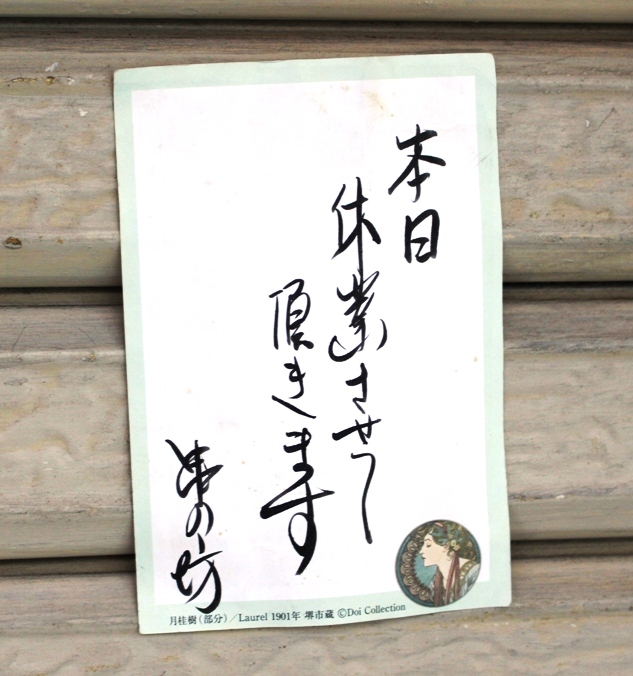 本日
休業させて
頂きます
の坊
月桂樹(部分)/Laurel 1901年 堺市蔵 ©Doi Collection